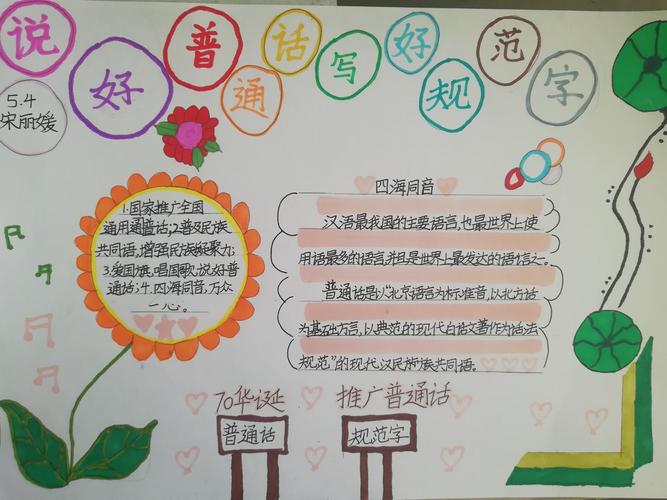 说好普通话写好规范字
5.4
宋丽媛
1.国家推广全国
通用通普话;2.普及民族
共同语,增强民族凝聚力;
3.爱国旗,唱国歌,说好普
通话;4.四海同音,万众
一心。
四海同音
汉语最我国的主要语言,也最世界上使
用语最多的语言,并且是世界上最发达的语信之一。
普通话是以“北京语言为标准音,以北方话
为基础方言,以典范的现代白话文著作为话法
规范”的现代汉民族族共同语。
70华诞
推广普通话
普通话
规范字